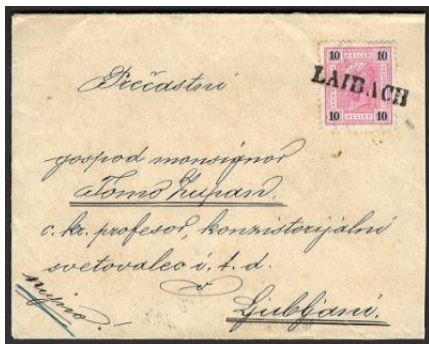 10 HELLER 10
LAIBACH
10 HELLER 10
Prečastni
gospod monsignor
Tomo Zupan.
c. kr. profesor, konzistorijalni
svetovalec i. t. d.
v
Ljubljani.
nujno.-